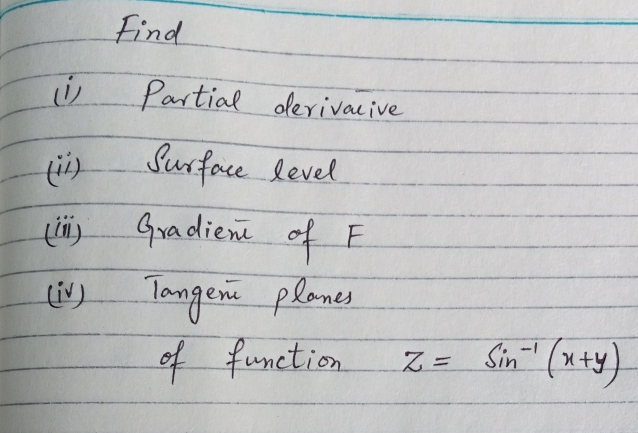 Find
(i) Partial derivative
(ii) Surface level
(iii) Gradient of F
(iv) Tangent planes
of function Z = Sin⁻¹ (x+y)